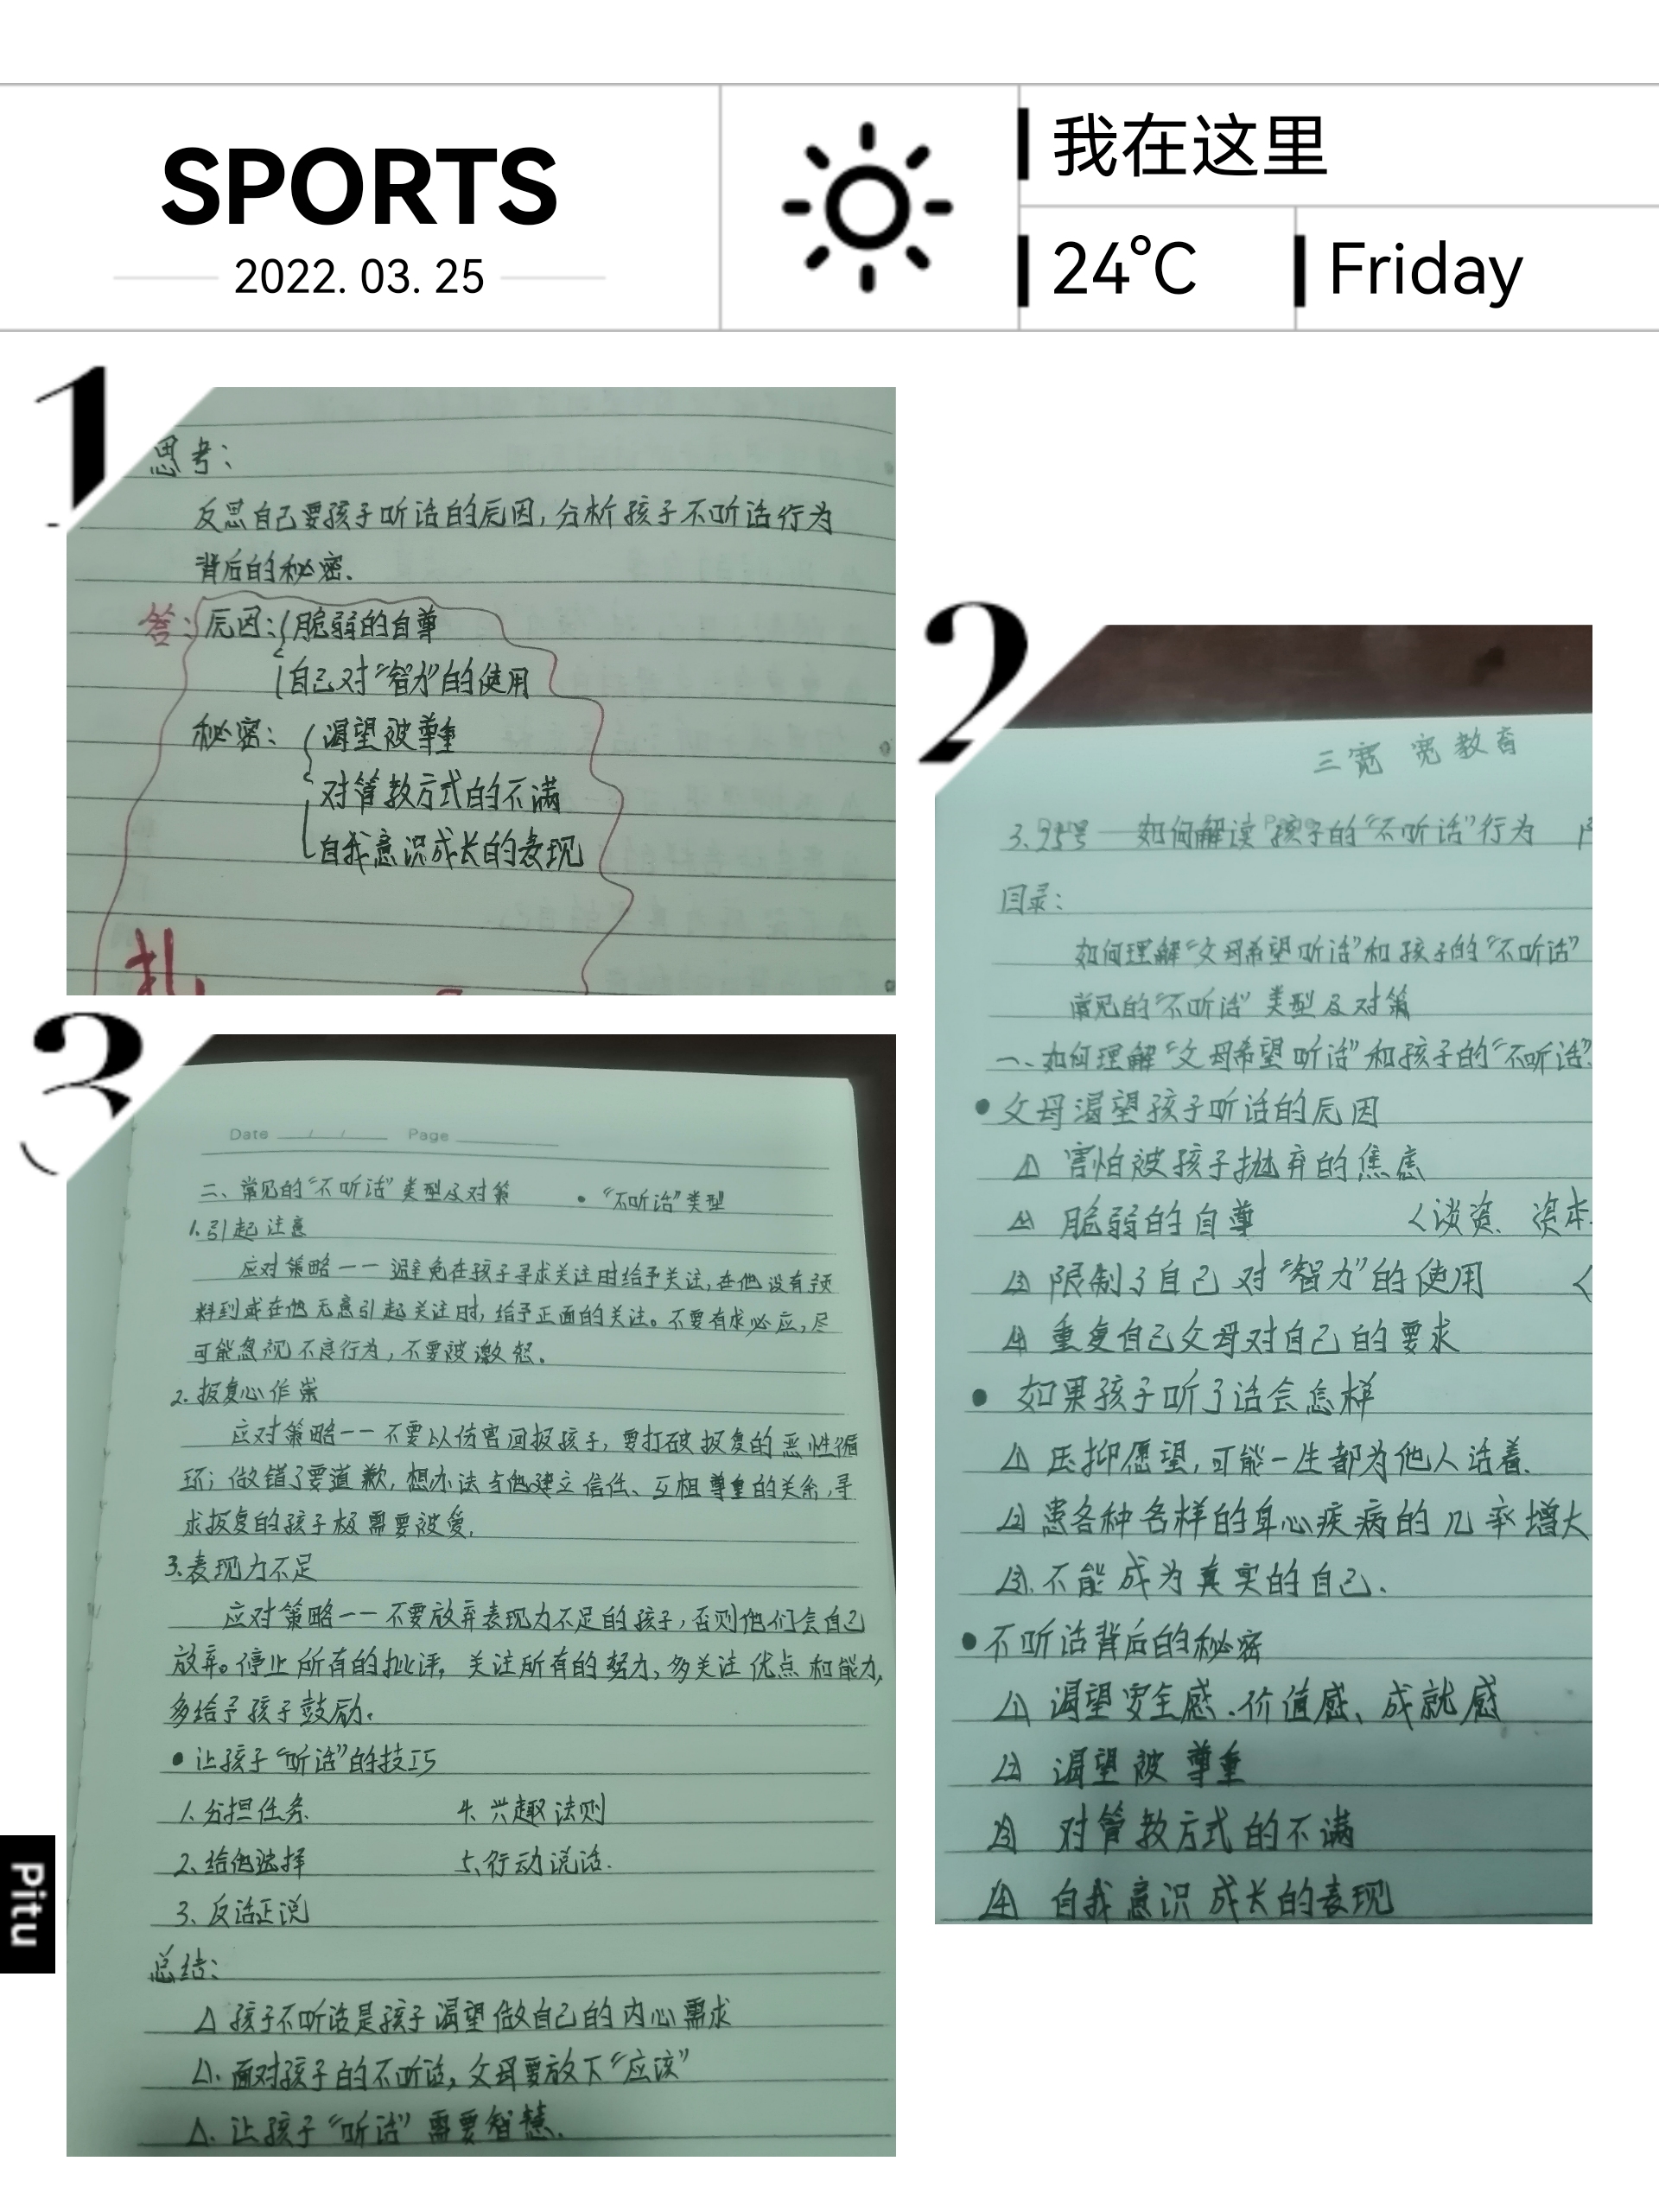 SPORTS
2022. 03. 25
我在这里
24°C
Friday
1
思考:
反思自己要孩子听话的原因,分析孩子不听话行为
背后的秘密.
答:原因:脆弱的自尊
自己对"智力"的使用
秘密:渴望被尊重
对管教方式的不满
自我意识成长的表现
扎
2
三宽 宽教育
3.25号 如何解读孩子的"不听话"行为
目录:
如何理解"父母希望听话"和孩子的"不听话"
常见的"不听话"类型及对策
一、如何理解"父母希望听话"和孩子的"不听话"
• 父母渴望孩子听话的原因
⚠1 害怕被孩子抛弃的焦虑
脆弱的自尊 <谈资、资本
限制了自己对"智力"的使用 <
重复自己父母对自己的要求
• 如果孩子听了话会怎样
压抑愿望,可能一生都为他人活着.
患各种各样的身心疾病的几率增大
不能成为真实的自己.
• 不听话背后的秘密
渴望安全感、价值感、成就感
渴望被尊重
对管教方式的不满
自我意识成长的表现
3
Date / / Page
二、常见的"不听话"类型及对策 • "不听话"类型
1.引起注意
应对策略——避免在孩子寻求关注时给予关注,在他没有预
料到或在他无意引起关注时,给予正面的关注。不要有求必应,尽
可能忽视不良行为,不要被激怒.
2.报复心作祟
应对策略——不要以伤害回报孩子,要打破报复的恶性循
环;做错了要道歉,想办法与他建立信任、互相尊重的关系,寻
求报复的孩子极需要被爱.
3.表现力不足
应对策略——不要放弃表现力不足的孩子,否则他们会自己
放弃。停止所有的批评,关注所有的努力,多关注优点和能力,
多给予孩子鼓励.
• 让孩子"听话"的技巧
1、分担任务 4、兴趣法则
2、给他选择 5、行动说话.
3、反话正说
总结:
△ 孩子不听话是孩子渴望做自己的内心需求
△. 面对孩子的不听话,父母要放下"应该"
△. 让孩子"听话"需要智慧.
Pitu